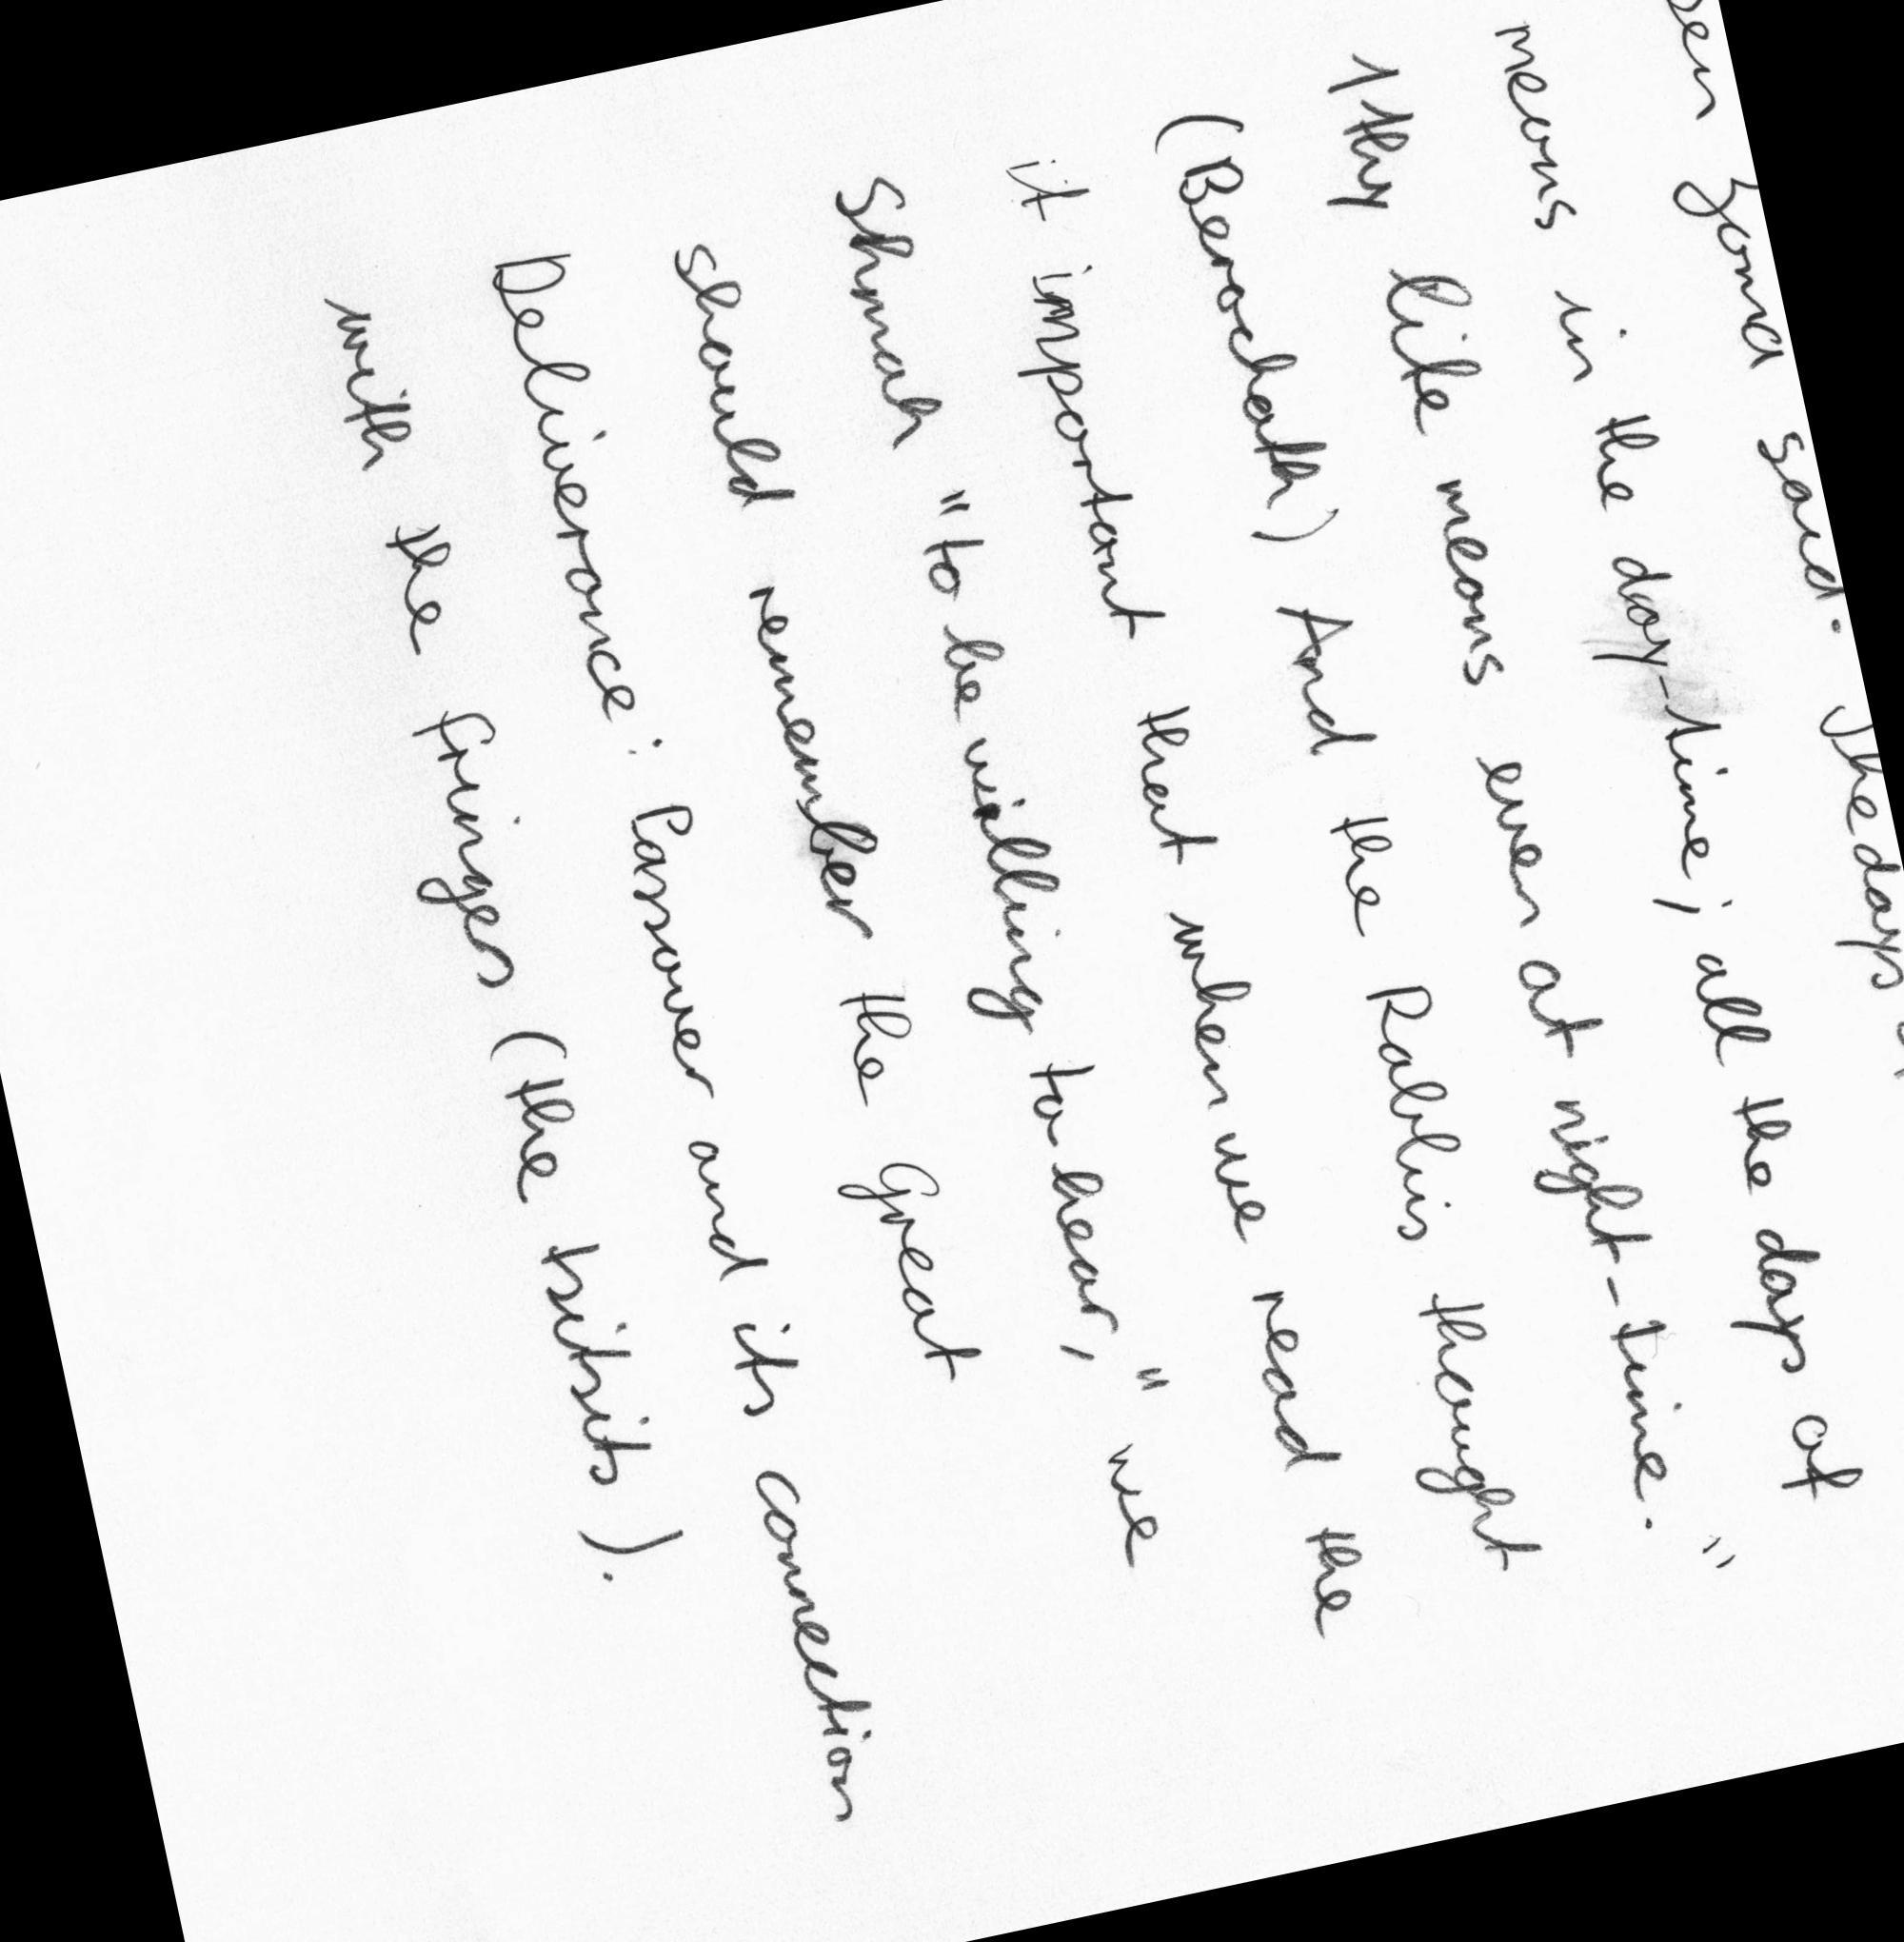 Zoma said: The days
means in the day-time; all the days of
thy life means even at night-time."
(Berochath) And the Rabbis thought
it important that when we read the
Shmah "to be willing to hear," we
should remember the Great
Deliverance: Passover and its connection
with the fringes (the tsitsits).